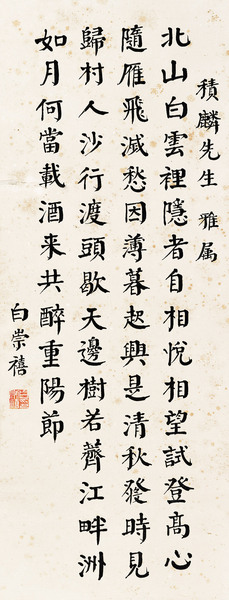 積麟先生 雅属
北山白雲裡隱者自相悅相望試登高心
隨雁飛滅愁因薄暮起興是清秋發時見
歸村人沙行渡頭歇天邊樹若薺江畔洲
如月何當載酒来共醉重陽節
白崇禧